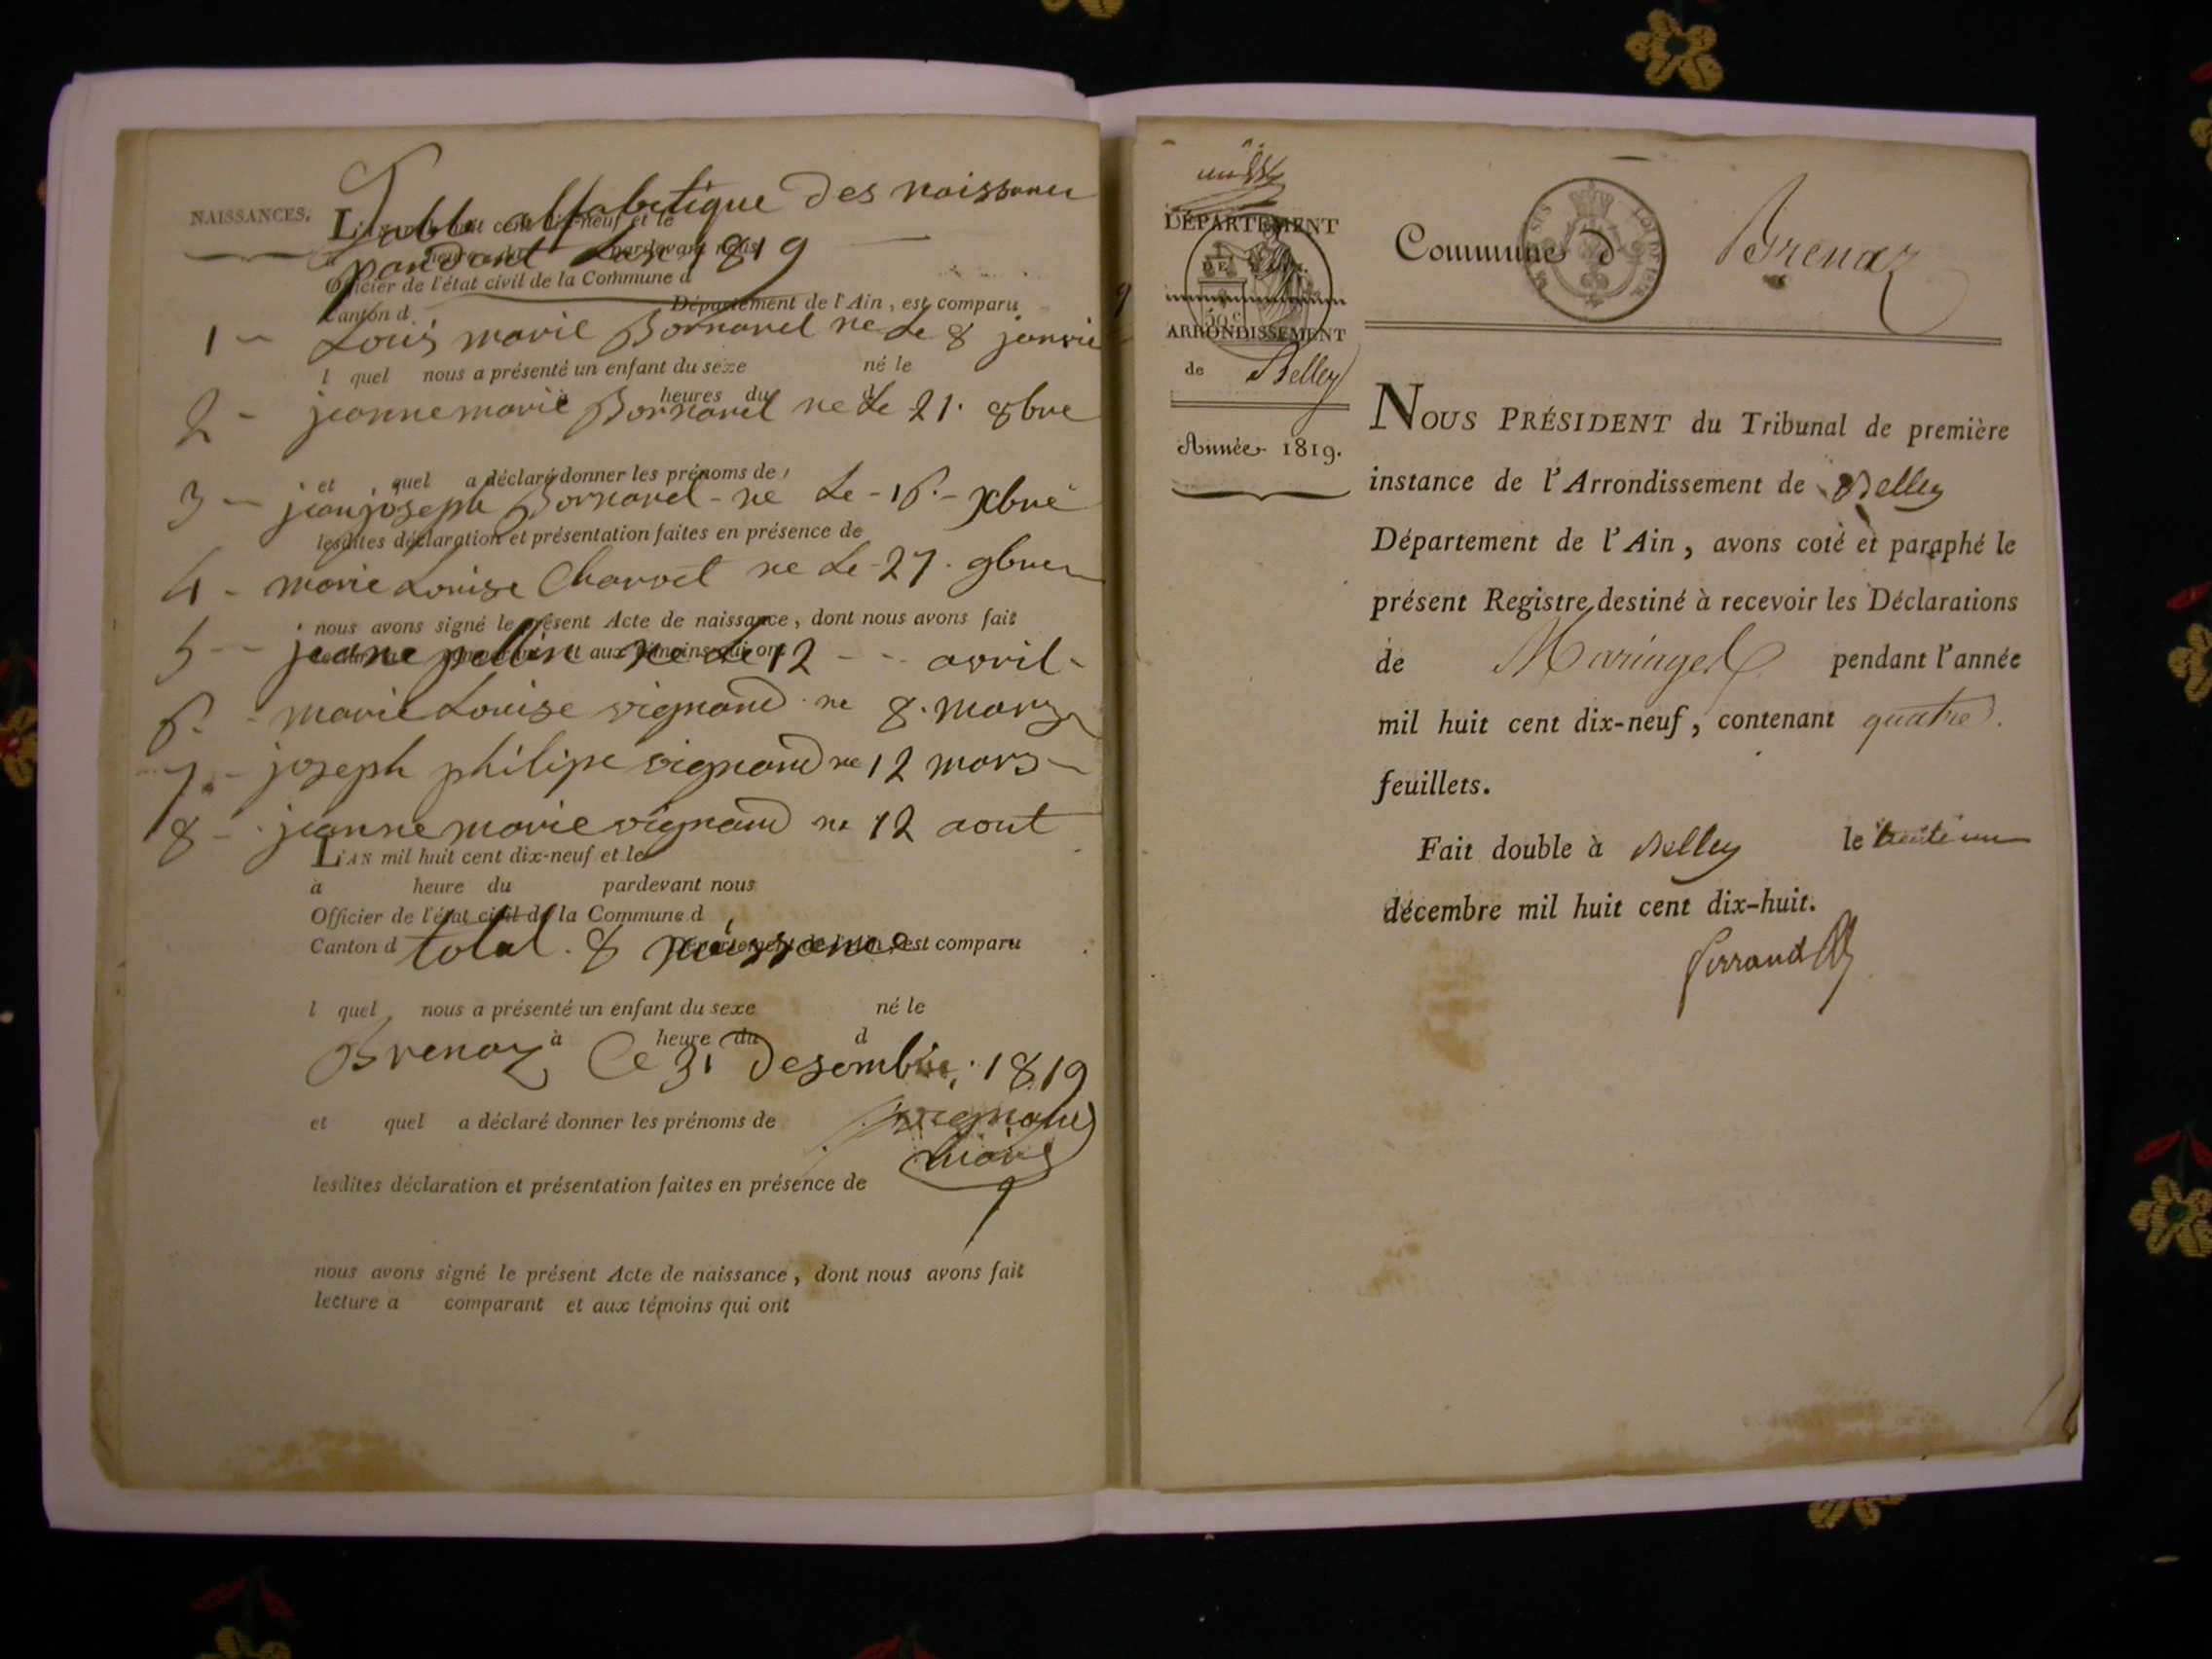 NAISSANCES.
Table alfabetique des naissances
L'AN mil huit cent dix-neuf et le
pandant Lan 1819
pardevant nous
Officier de l'état civil de la Commune d
Canton d Département de l'Ain, est comparu
1 - Louis marie Bornarel ne Le 8 janvie
l quel nous a présenté un enfant du sexe né le
heures du d
2 - jeanne marie Bornarel ne Le 21. 8bre
et quel a déclaré donner les prénoms de
3 - jean joseph Bornarel - ne Le - 16 - Xbre
lesdites déclaration et présentation faites en présence de
4 - marie Louise Charvet ne Le 27. 9bre
nous avons signé le présent Acte de naissance, dont nous avons fait
et aux témoins qui ont
5 - jeane pellin ne Le 12 - - avril -
6 - marie Louise vignand ne 8. mars
7 - joseph philipe vignand ne 12 mars -
8 - jeanne marie vignand ne 12 aout
L'AN mil huit cent dix-neuf et le
à heure du pardevant nous
Officier de l'état civil de la Commune d
Canton d Département de l'Ain, est comparu
total. 8 naissance
l quel nous a présenté un enfant du sexe né le
à heure du d
Brenaz Ce 31 Desembre, 1819
et quel a déclaré donner les prénoms de
vignand
maire
lesdites déclaration et présentation faites en présence de
nous avons signé le présent Acte de naissance, dont nous avons fait
lecture a comparant et aux témoins qui ont
DÉPARTEMENT
DE L'AIN.
50 c
ARRONDISSEMENT
de Belley
Année 1819.
Commune d Brenaz
NOUS PRÉSIDENT du Tribunal de première
instance de l'Arrondissement de Belley
Département de l'Ain, avons coté et paraphé le
présent Registre, destiné à recevoir les Déclarations
de Mariages pendant l'année
mil huit cent dix-neuf, contenant quatre
feuillets.
Fait double à Belley le trente un
décembre mil huit cent dix-huit.